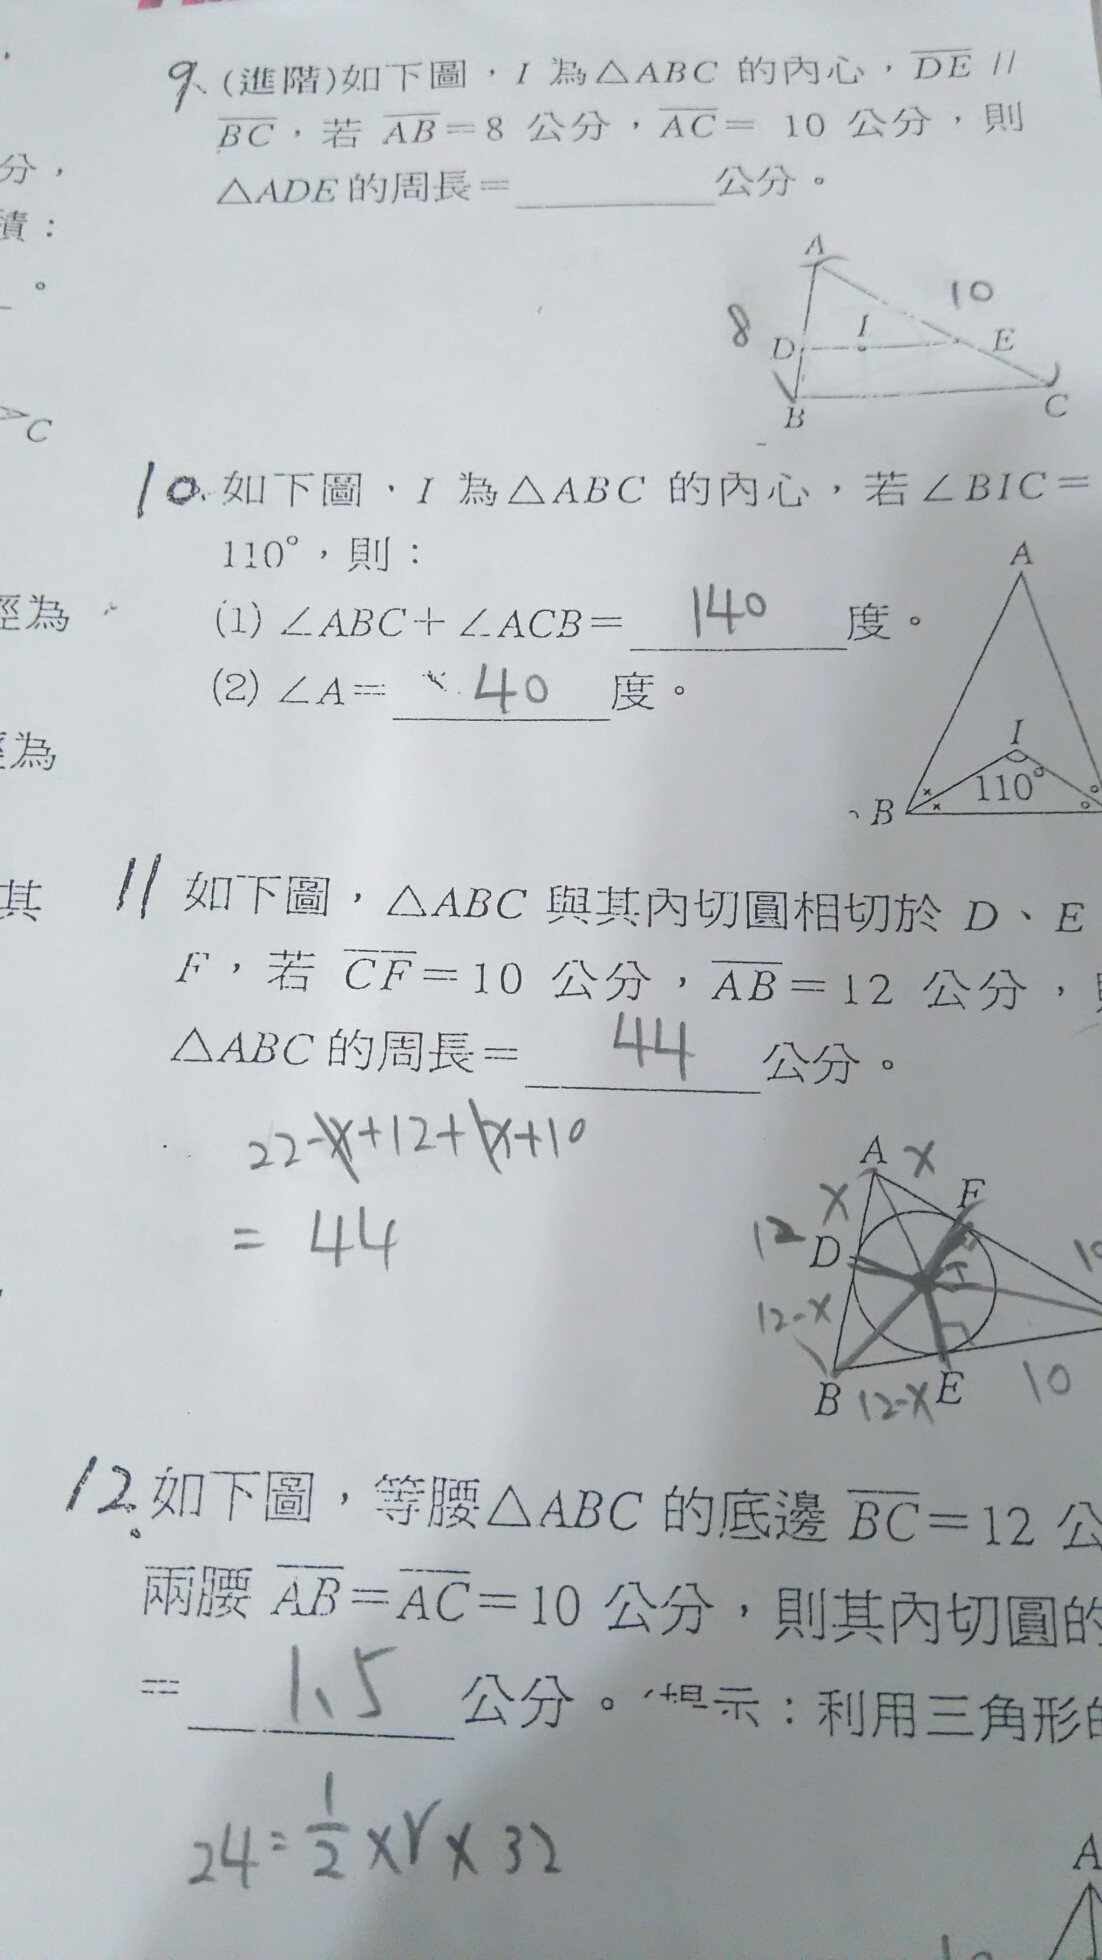 9、(進階)如下圖，I 為△ABC 的內心，DE //
BC，若 AB=8 公分，AC= 10 公分，則
△ADE 的周長=________公分。
分，
積：
。
A
10
8
D
I
E
B
C
C
10. 如下圖，I 為△ABC 的內心，若∠BIC=
110°，則：
(1) ∠ABC+∠ACB= 140 度。
(2) ∠A= 40 度。
徑為
徑為
A
I
110°
B
其
11 如下圖，△ABC 與其內切圓相切於 D、E
F，若 CF=10 公分，AB=12 公分，
△ABC 的周長= 44 公分。
22-x+12+x+10
= 44
A x
x F
12 D I 10
12-x
B 12-x E 10
12. 如下圖，等腰△ABC 的底邊 BC=12 公
兩腰 AB=AC=10 公分，則其內切圓的
= 1.5 公分。(提示：利用三角形的
24=1/2×r×32
A
10